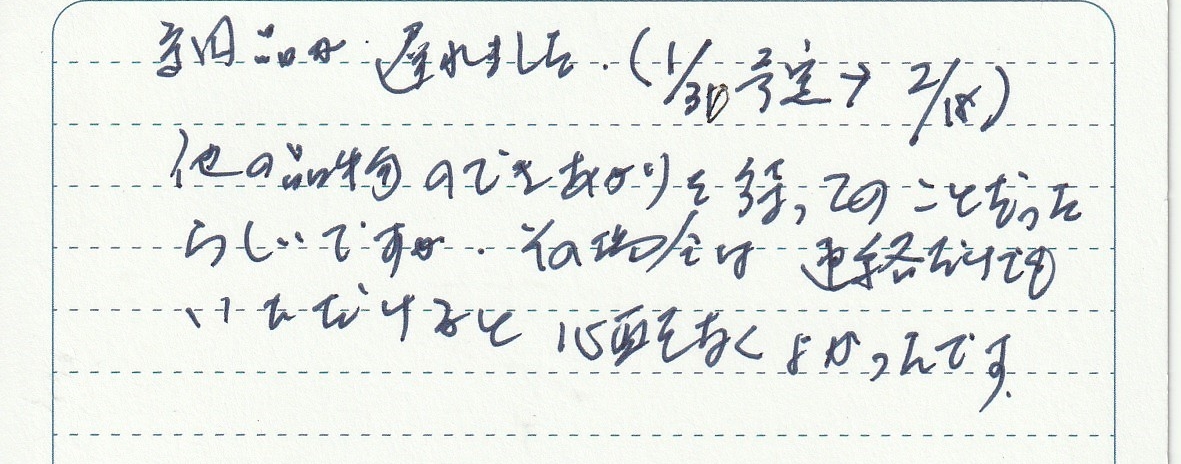 納品が遅れました.(1/30予定→2/18)
他の品物のできあがりを待ってのことだった
らしいですが.その場合は連絡だけでも
いただけると心配なくよかったです.